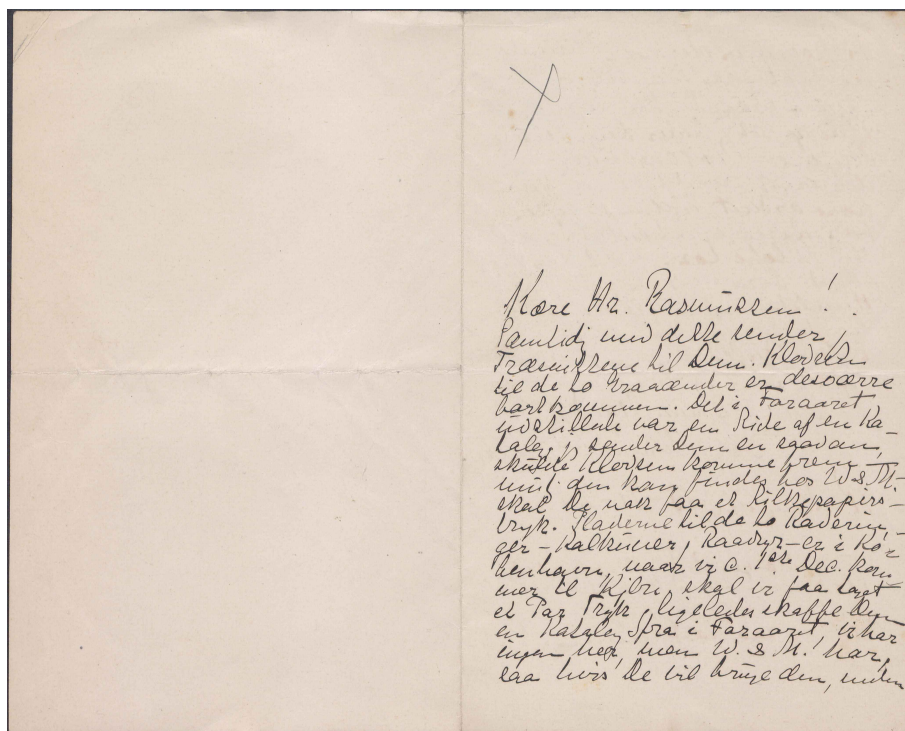 Kære Hr. Rasmussen!
Samtidig med dette sender j
Træsnittene til Dem. Klodsen
til de to Graaænder er desværre
bortkommen. Det i Foraaret
udstillede var en Side af en Ka-
talog, j. sender Dem en saadan,
skulde Klodsen komme frem,
muli den kan findes hos W. & M.
skal De nok faa et Silkepapirs-
tryk. Pladerne til de to Raderin-
ger – Kalkuner, Raadyr – er i Kø-
benhavn, naar vi c. 1ste Dec. kom
mer til Kjbn. skal vi faa taget
et Par Tryk, ligeledes skaffe Dem
en Katalog fra i Foraaret, vi har
ingen her, men W. & M. har,
saa hvis De vil bruge den, inden